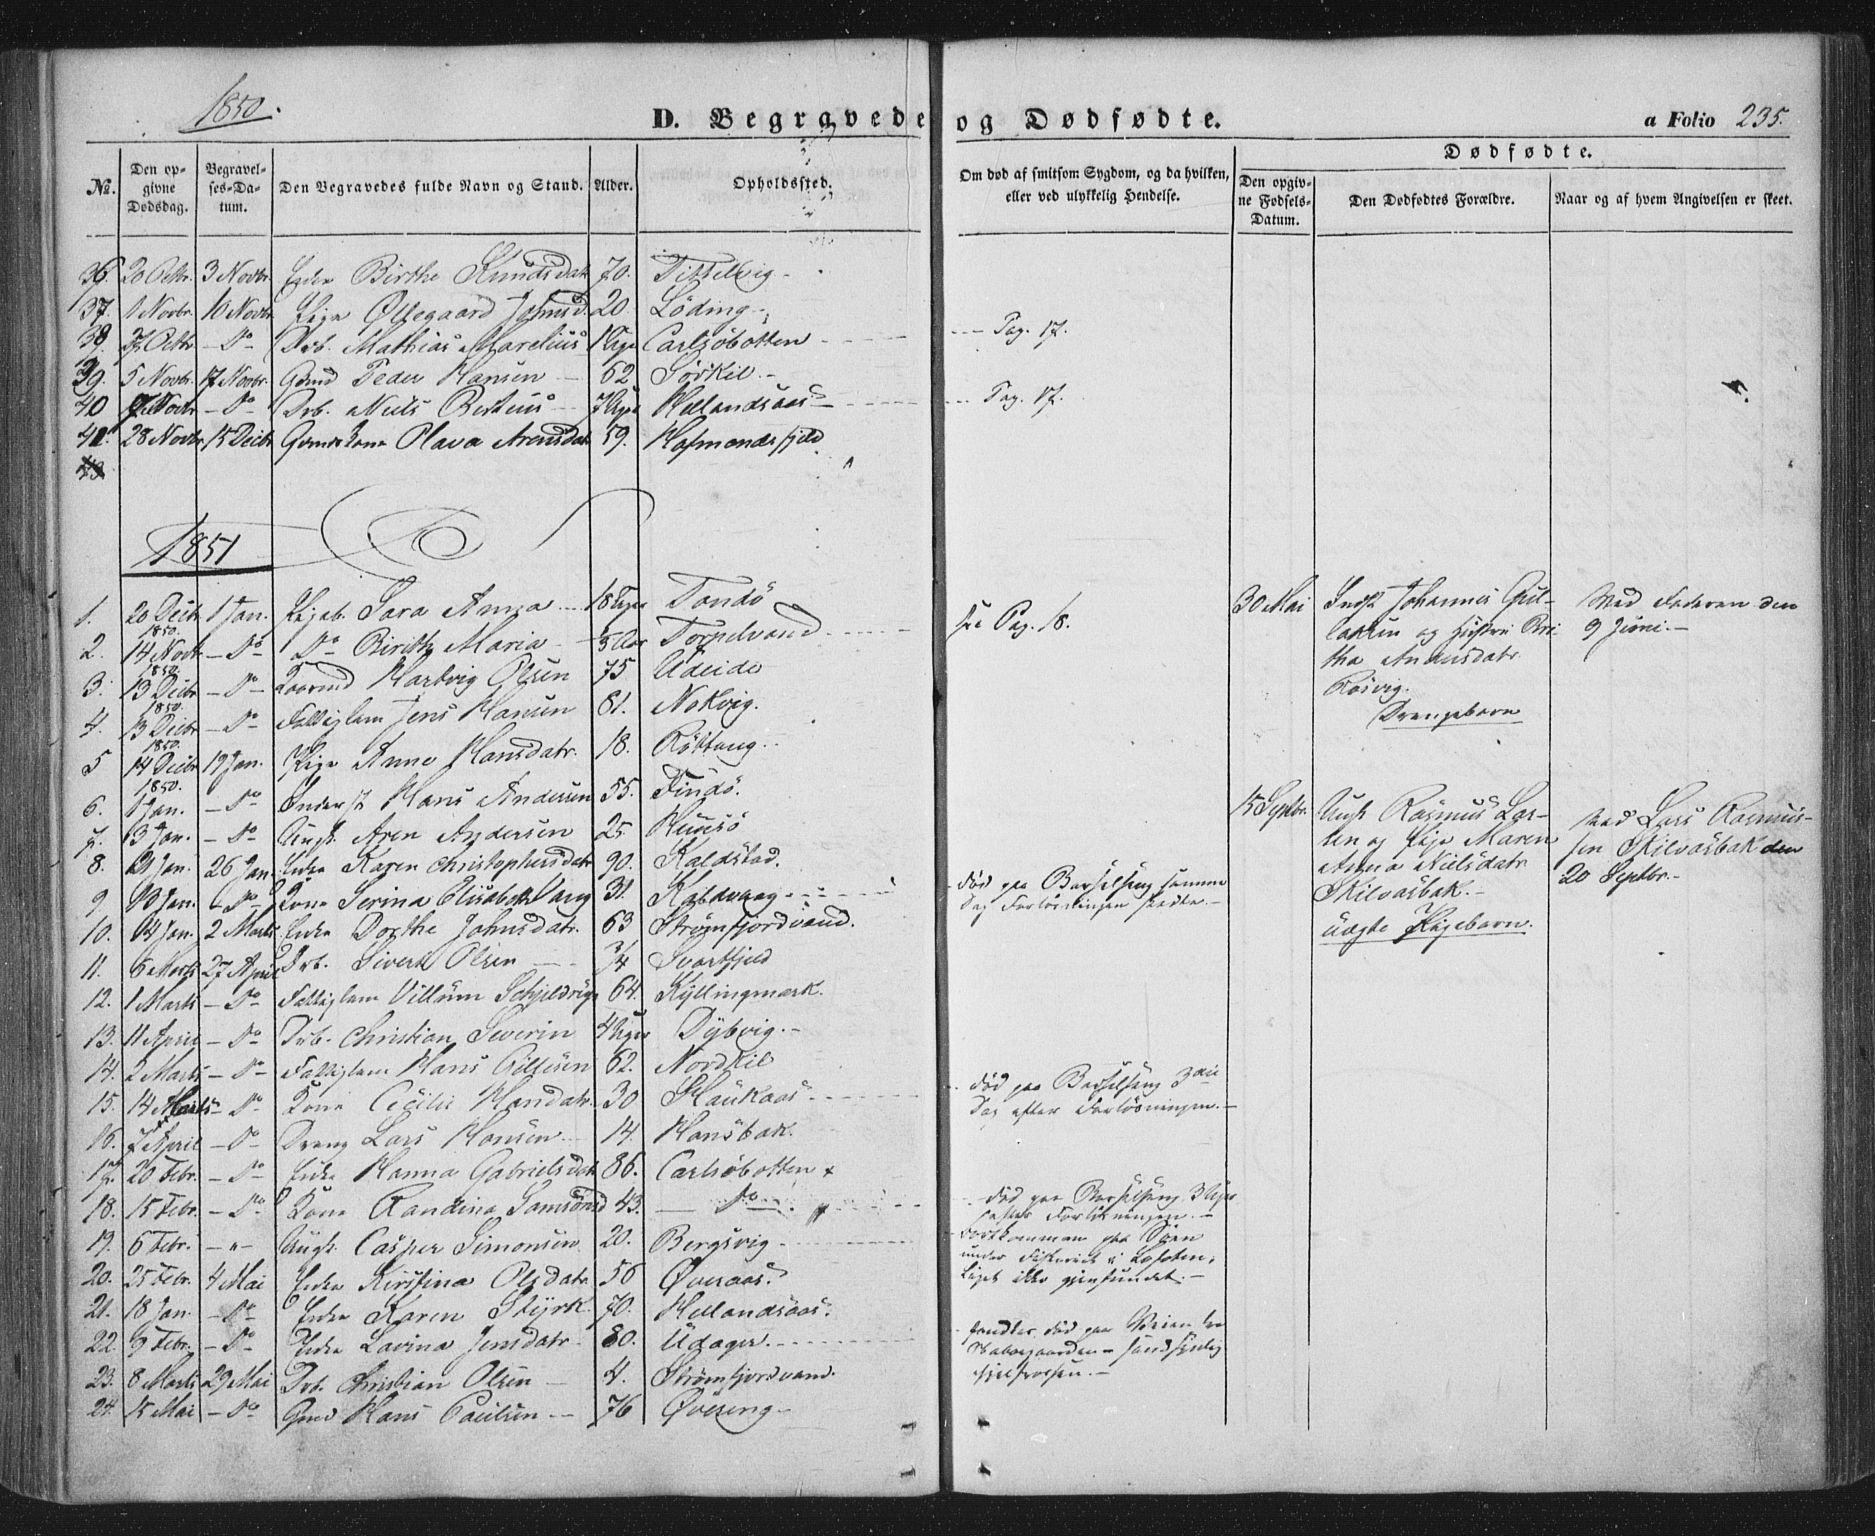 1850.
D. Begravede og Dødfødte.
a Folio 235.
No. Den opgivne Dødsdag. Begravelses-Datum. Den Begravedes fulde Navn og Stand. Alder. Opholdssted. Om død af smitsom Sygdom, og da hvilken, eller ved ulykkelig Hendelse.
Dødfødte.
Den opgivne Fødsels-Datum. Den Dødfødtes Forældre. Naar og af hvem Angivelsen er skeet.
36. 20 Octbr. 3 Novbr. Enke Birthe Knudsdatr 70. Tittelvig -
37. 1 Novbr. 10 Novbr. Pige Ollegaard Johnsd. 20. Löding -
38. 27 Octbr - Do Drb. Mathias Marelius 1 Uge Carlsöbotten - - - Pag. 17.
39. 5 Novbr. 17 Novbr. Gmd Peder Hansen - 62 Sörkil. -
40 7 Novbr - Do Drb. Niels Berteus 7 Uger Hellandsaas - - - Pag. 17.
41. 28 Novbr 15 Decbr Gmds Kone Olava Arensdatr 59. Hofmandsfjeld.
1851
1. 20 Decbr 1850. 1 Jan. Pigeb. Sara Anna - - 18 Uger Tondö see Pag. 18.
2. 14 Novbr 1850. - Do Do Birithe Maria - Torpelvand - - -
3. 13 Decbr 1850. - Do - Hartvig Olsen 75 Udeide
4. 13 Decbr 1850. - Do - Fattiglem Jens Hansen 81. Nokvig.
5 14 Decbr 1850. 19 Jan. Pige Anne Hansdatr. 18. Röttang.
6. 1 Jan. - Do Inderst Hans Andersen 55. Findö.
7. 3 Jan. - Do Ungk. Aren Andersen 25.
8. 2 Jan. 26 Jan. Enke Karen Christophersdatr 90. Kaldstad.
9 10 Jan. - Do - Kone Serina Elisabeth Vang 31. Död paa Barselseng samme Dag Forlösningen skedte. -
10. 14 Jan. 2 Marts Enke Dorthe Johnsdatr. 63 Strömfjordvand.
11. 6 Marts 27 April Drb. Sivert Olsen - - 3/4 Svartfjeld
12. 1 Marts - Do - Fattiglem Villum Schjeldrup 64. Kyllingmark.
13. 11 April - Do - Drb. Christian Severin 4 Uger Dybvig. -
14. 2 Marts - Do - Fattiglem Hans Ellesen 62. Nordkil
15. 14 Marts - Do - Kone Cecilie Hansdatr. 30 Haukaas - - - Död paa Barselseng 3die Dag efter Forlösningen. -
16. 7 April - Do - Dreng Lars Hansen - 14. Hansbak.
17. 20 Febr. - Do Enke Hanna Gabrielsdatr 86. Carlsöbotten
18. 15 Febr. - Do Kone Randina Samsonsd 43. - Do - Död paa Barselseng 3 Uger efter Forlösningen. -
19. 6 Febr. - " - Ungk. Casper Simonsen 20. Bergsvig - - - Omkommen paa Söen under Fiskeriet i Lofoten, Liget ikke gjenfundet. -
20. 25 Febr. 4 Mai Enke Kirstina Olsdatr 56 Överaas.
21. 18 Jan. - Do - Enke Karen Styrk. 70. Hellandsaas.
22. 9 Febr. - Do - Enke Lavina Jensdatr - 80. Udager. - - - fandtes död paa Veien fra Naboegaarden - sandsynlig ihjelfrossen. -
23. 8 Marts 29 Mai Drb. Christian Olsen - 4. Strömfjordvand.
24. 15 Mai - Do Gmd Hans Paulsen - - 76 Övereng -
30 Mai Indst Johannes Gullaksen og Hustru Britha Andersdatr Rösvig. Drengebarn
Ved Faderen den 9 Juni. -
15 Septbr. Ungk. Rasmus Larsen og Pige Maren Anna Nielsdatr Skilvasbak. - Uægte Pigebarn.
Ved Lars Rasmussen Skilvasbak den 20 Septbr. -